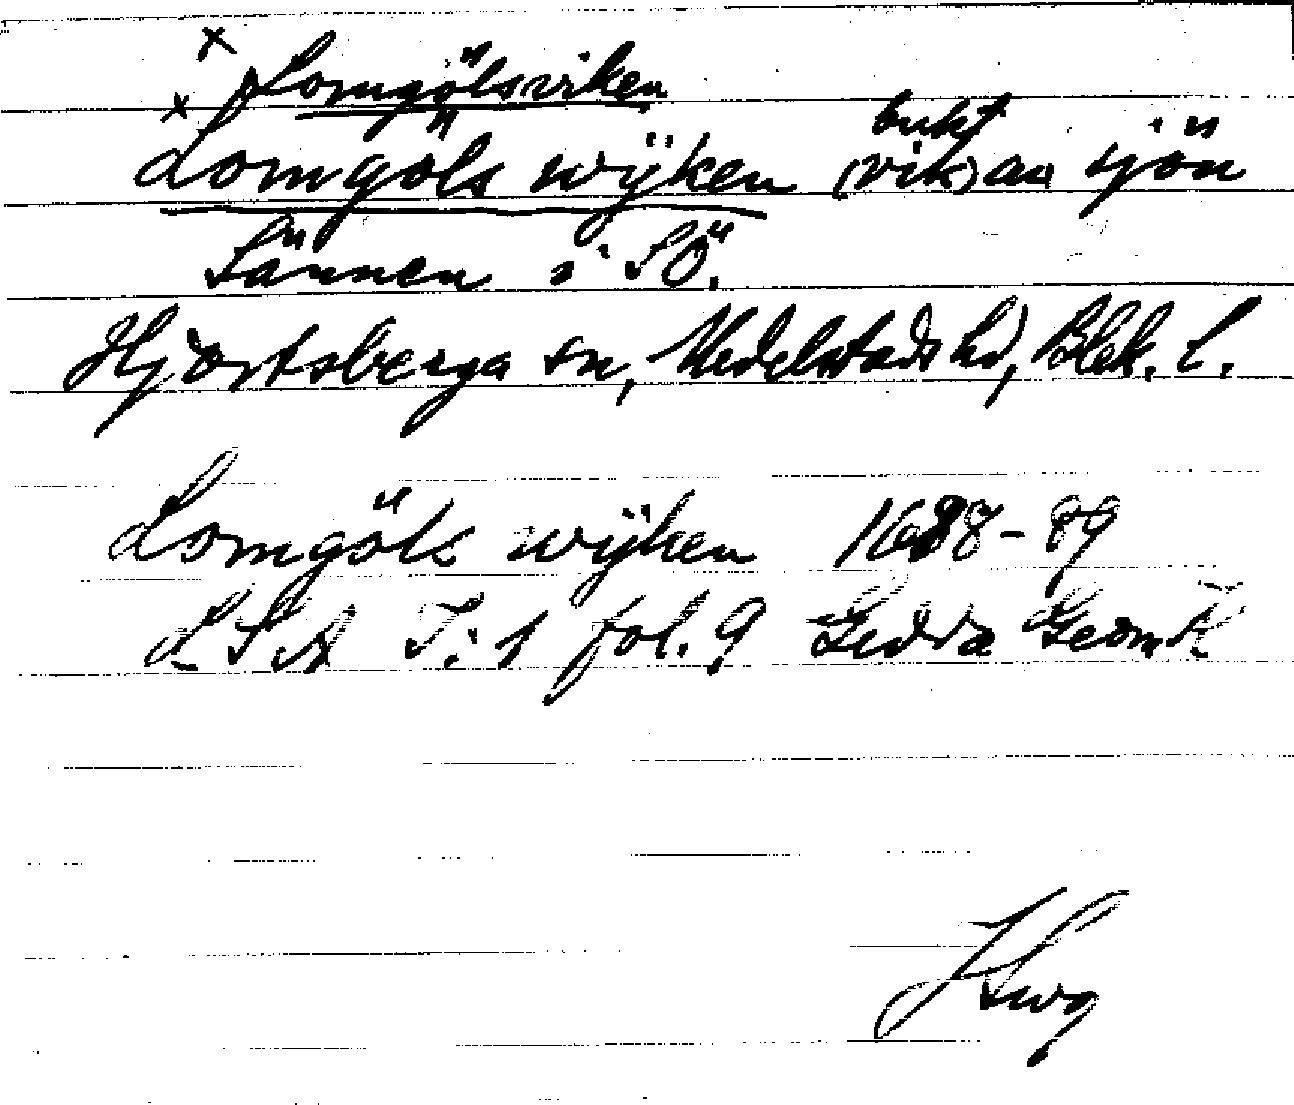 x Lomgölsviken
x Lomgöls wÿken (vik) bukt av sjön
Sännen i SÖ.
Hjortsberga sn, Medelstads hd, Blek. l.
Lomgöls wÿken 1688-89
LSA I:1 fol. 9 Gedda Geom.